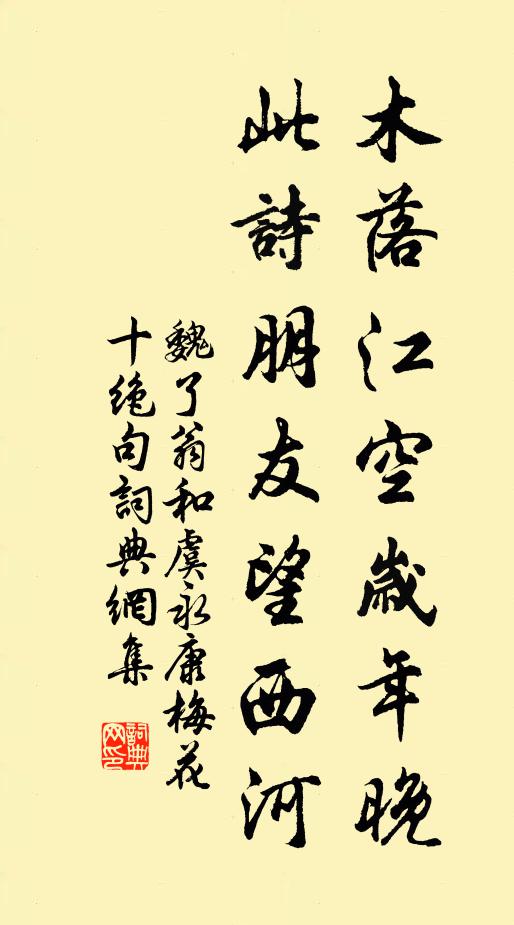 木落江空歲年晚
此詩朋友望西河
魏了翁和虞永康梅花
十絕句詞典網集
詞典
网印